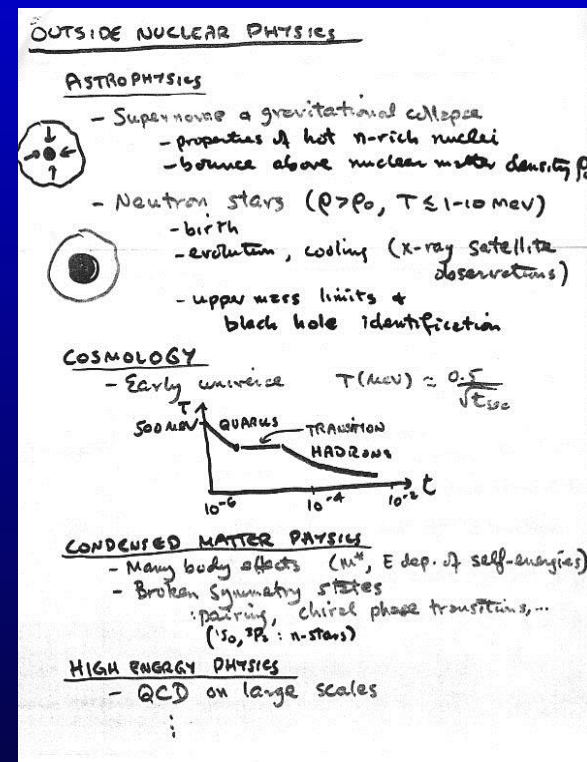 OUTSIDE NUCLEAR PHYSICS
ASTROPHYSICS
- Supernovae & gravitational collapse
- properties of hot n-rich nuclei
- bounce above nuclear matter density ρ₀
- Neutron stars (ρ>ρ₀, T ≤ 1-10 MeV)
- birth
- evolution, cooling (x-ray satellite
observations)
- upper mass limits &
black hole identification
COSMOLOGY
- Early universe T(MeV) ≃ 0.5/√t_sec
T
500 MeV QUARKS TRANSITION
HADRONS
t
10⁻⁶ 10⁻⁴ 10⁻²
CONDENSED MATTER PHYSICS
- Many body effects (m*, E dep. of self-energies)
- Broken symmetry states
: pairing, chiral phase transitions, ...
(¹S₀, ³P₂ : n-stars)
HIGH ENERGY PHYSICS
- QCD on large scales
⋮